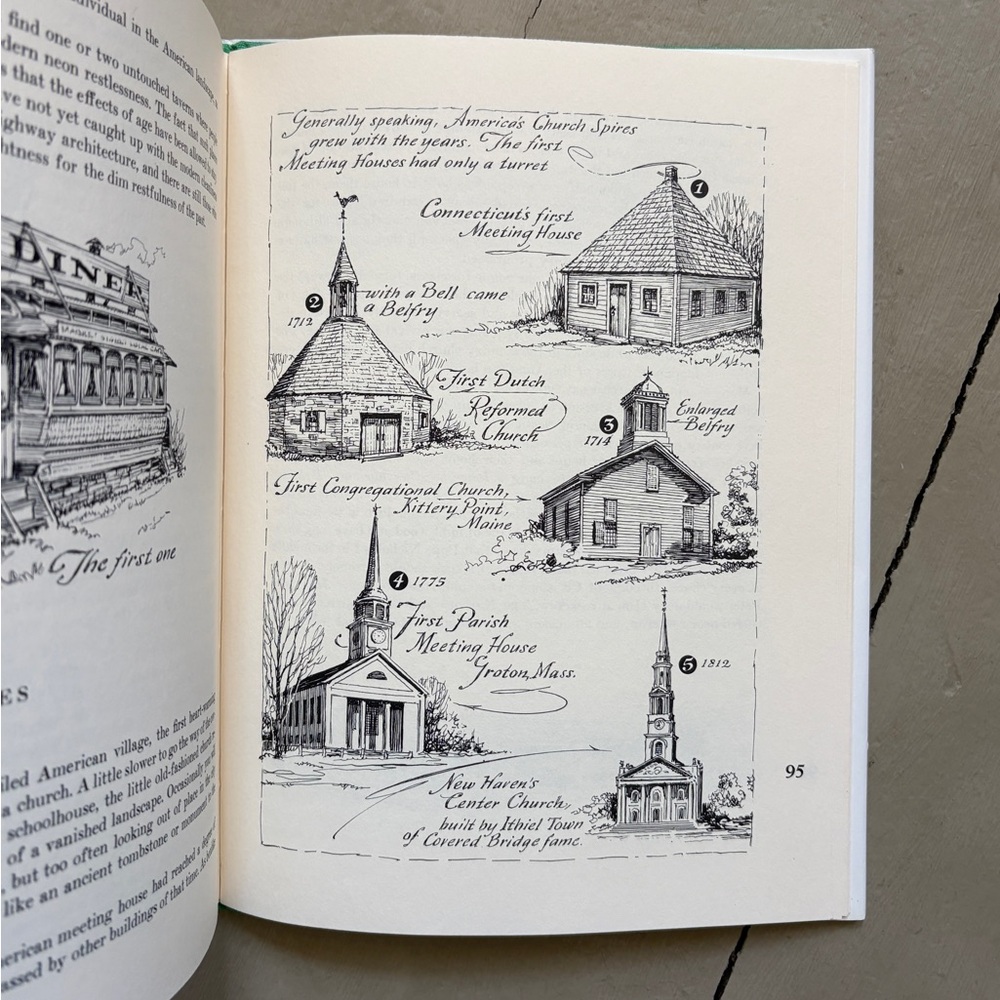 individual in the American landscape,
find one or two untouched taverns where
modern neon restlessness. The fact that such
s that the effects of age have been allowed
ve not yet caught up with the modern
ighway architecture, and there are still those who
htness for the dim restfulness of the past.
DINER
The first one
ES
iled American village, the first heart-warming
a church. A little slower to go the way of the
schoolhouse, the little old-fashioned church
of a vanished landscape. Occasionally you
, but too often looking out of place in the
like an ancient tombstone or monument in the
merican meeting house had reached a degree of
assed by other buildings of that time. As
Generally speaking, America's Church Spires
grew with the years. The first
Meeting Houses had only a turret
1
Connecticut's first
Meeting House
2
1712
with a Bell came
a Belfry
First Dutch
Reformed
Church
3
1714
Enlarged
Belfry
First Congregational Church,
Kittery Point,
Maine
4 1775
First Parish
Meeting House
Groton, Mass.
5 1812
New Haven's
Center Church,
built by Ithiel Town
of Covered Bridge fame.
95